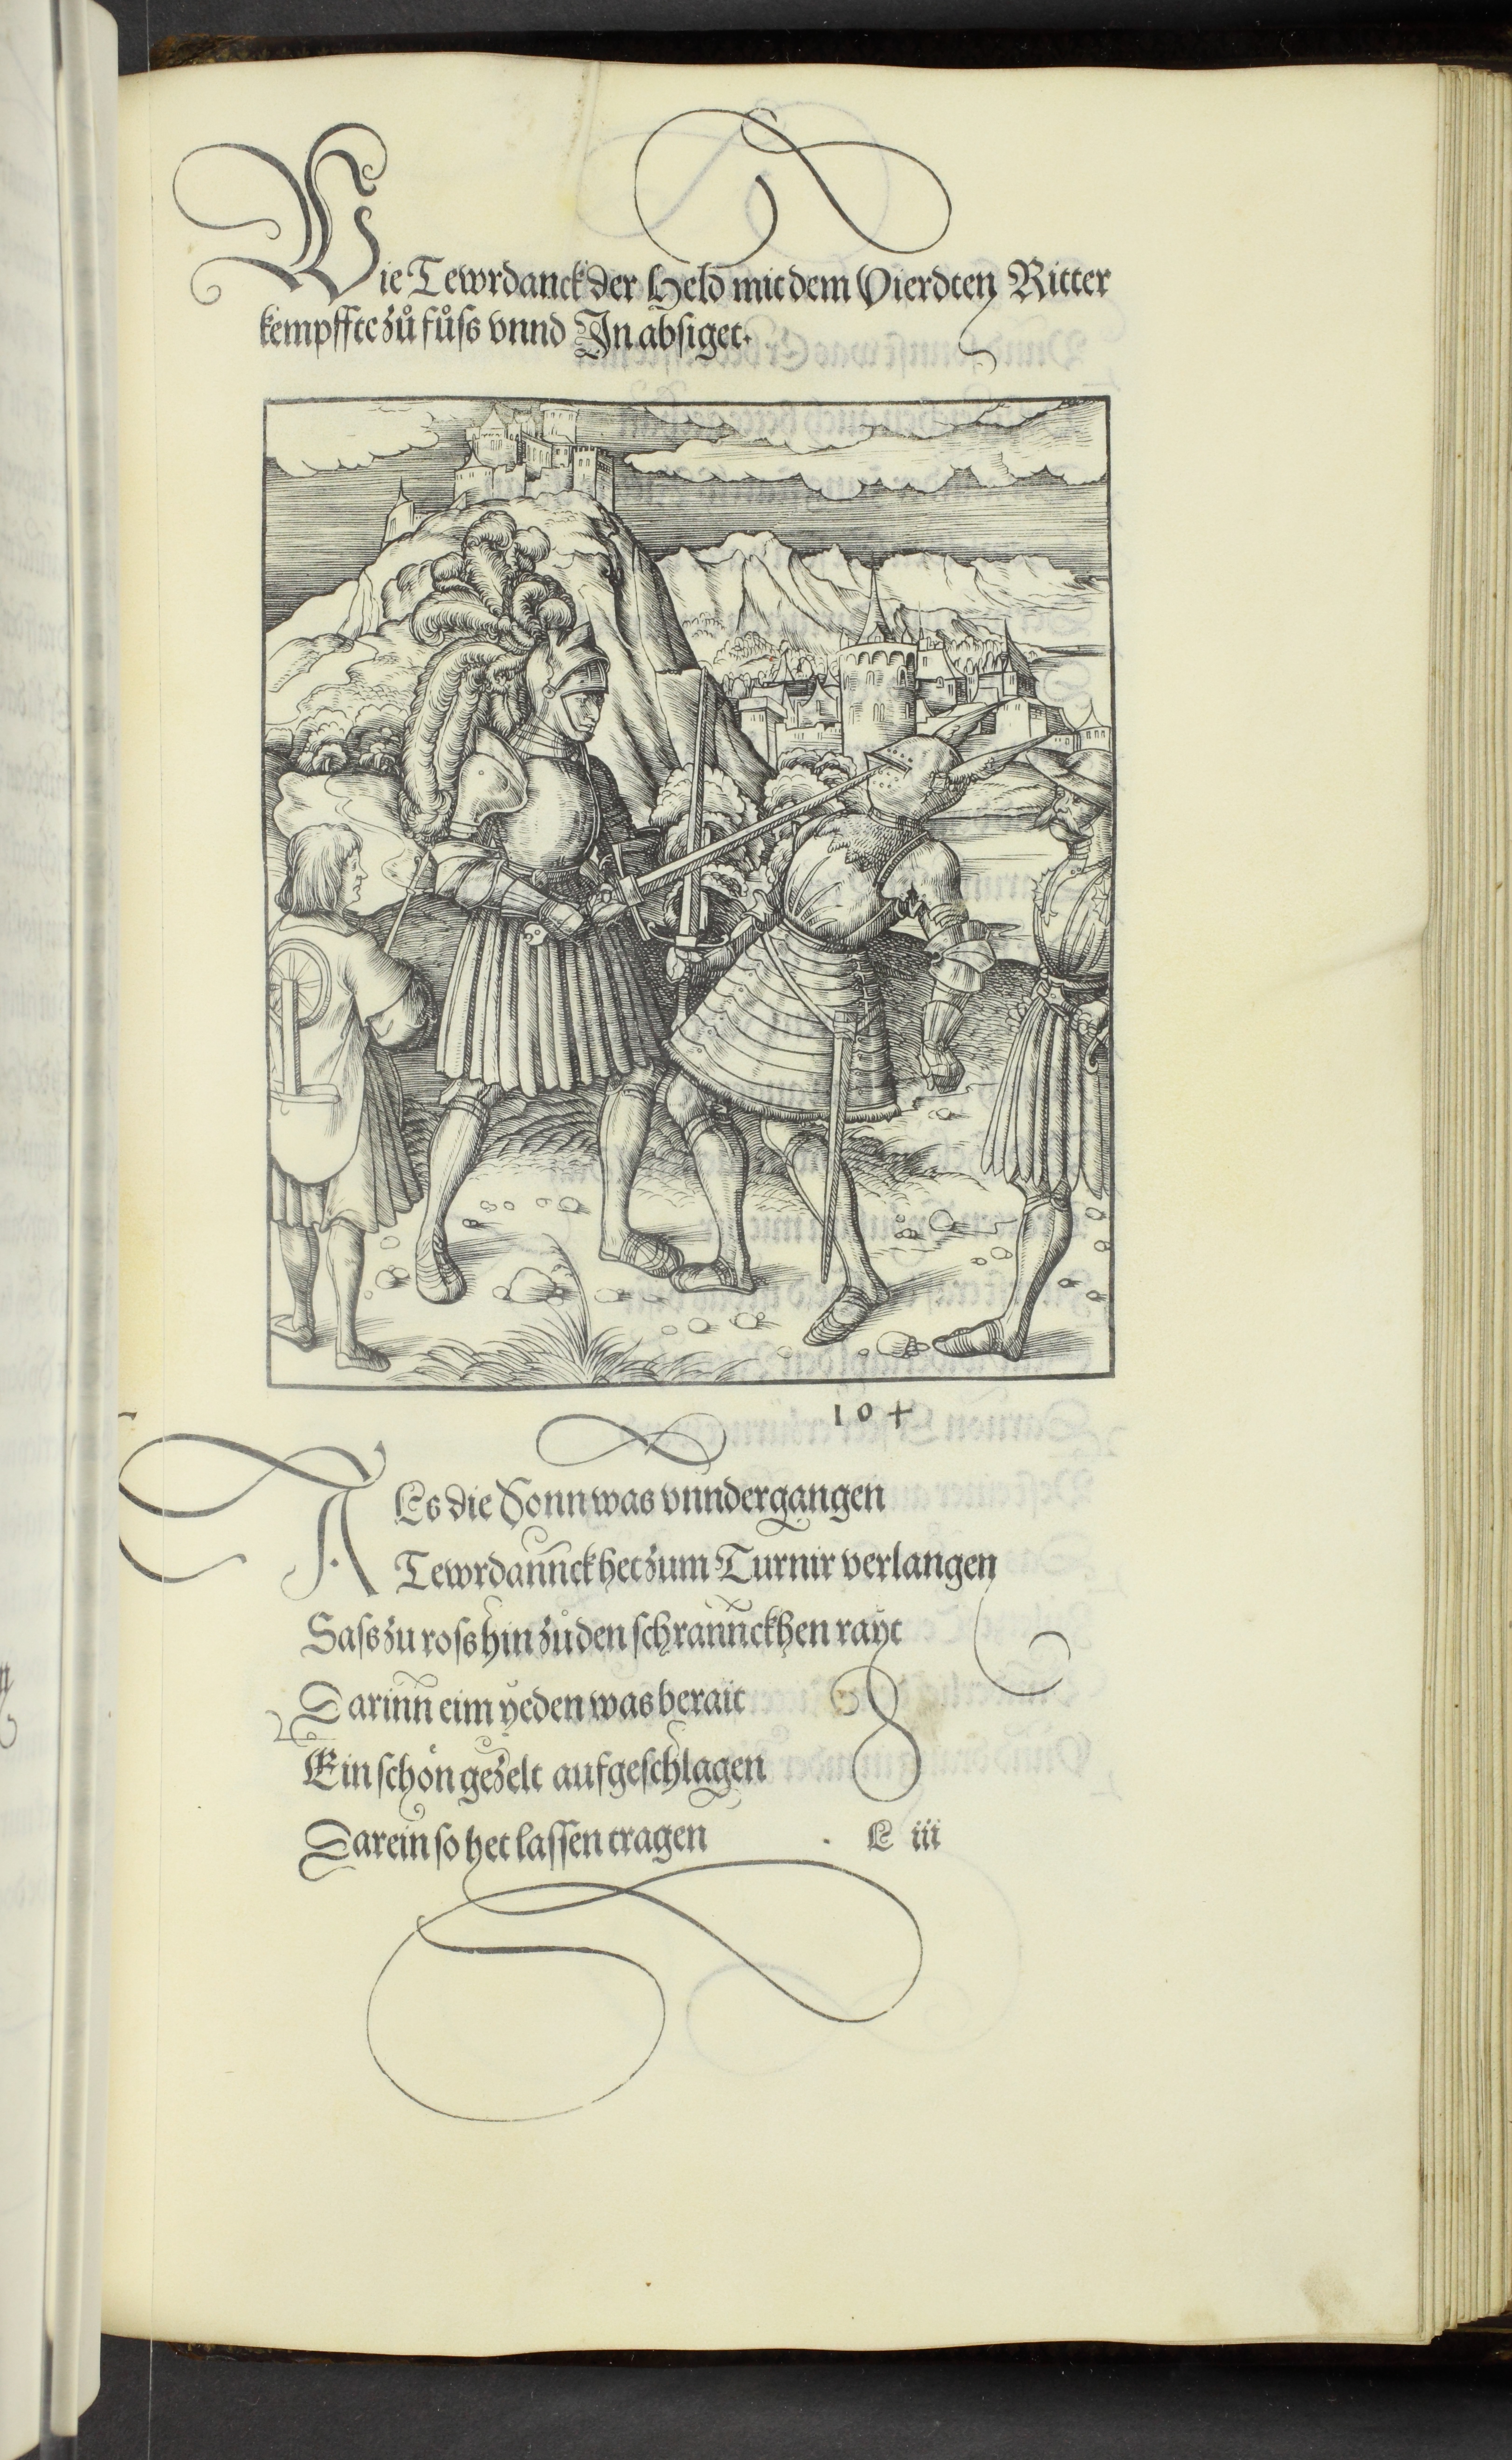 Wie Tewrdanck der Held mit dem Vierdten Ritter
kempffte zů fůss vnnd In absiget.
104
ALs die Sonn was vnndergangen
Tewrdannckh het zum Turnir verlangen
Sass zu ross hin zů den schrannckhen rayt
Darinn eim yeden was berait
Ein schön gezelt aufgeschlagen
Darein so het lassen tragen
L iii